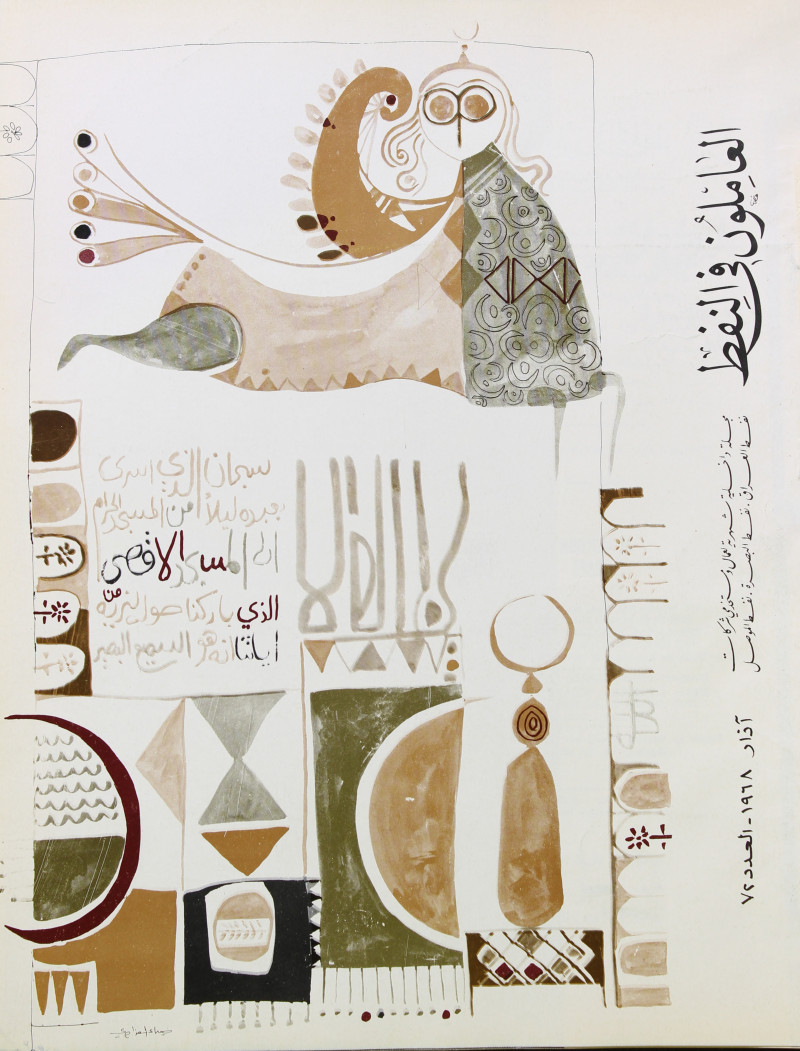 العاملون في النفط
مجلة داخلية شهرية لعمال ومستخدمي شركات
نفط العراق . نفط البصرة . نفط الموصل
آذار ١٩٦٨ - العدد ٧٢
سبحان الذي اسرى
بعبده ليلاً من المسجد الحرام
الى المسجد الاقصى
الذي باركنا حوله لنريه من
اياتنا انه هو السميع البصير
الله